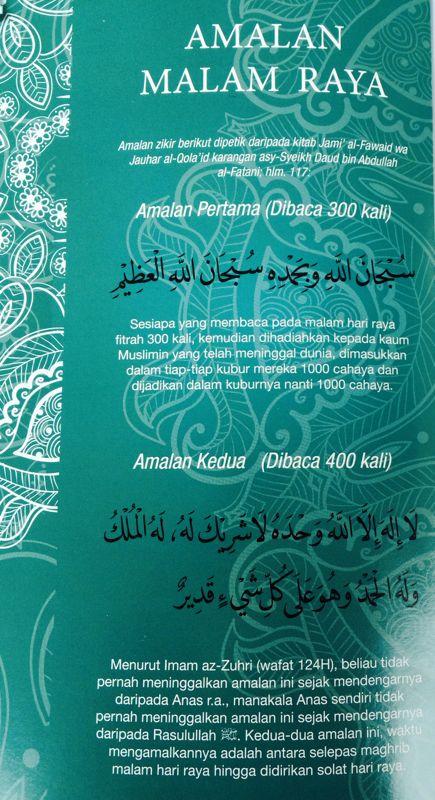 AMALAN
MALAM RAYA
Amalan zikir berikut dipetik daripada kitab Jami' al-Fawaid wa
Jauhar al-Qola'id karangan asy-Syeikh Daud bin Abdullah
al-Fatani; hlm. 117:
Amalan Pertama (Dibaca 300 kali)
سُبْحَانَ اللَّهِ وَبِحَمْدِهِ سُبْحَانَ اللَّهِ الْعَظِيْمِ
Sesiapa yang membaca pada malam hari raya
fitrah 300 kali, kemudian dihadiahkan kepada kaum
Muslimin yang telah meninggal dunia, dimasukkan
dalam tiap-tiap kubur mereka 1000 cahaya dan
dijadikan dalam kuburnya nanti 1000 cahaya.
Amalan Kedua (Dibaca 400 kali)
لَا إِلَهَ إِلَّا اللَّهُ وَحْدَهُ لَا شَرِيْكَ لَهُ، لَهُ الْمُلْكُ
وَلَهُ الْحَمْدُ وَهُوَ عَلَى كُلِّ شَيْءٍ قَدِيْرٌ
Menurut Imam az-Zuhri (wafat 124H), beliau tidak
pernah meninggalkan amalan ini sejak mendengarnya
daripada Anas r.a., manakala Anas sendiri tidak
pernah meninggalkan amalan ini sejak mendengarnya
daripada Rasulullah ﷺ. Kedua-dua amalan ini, waktu
mengamalkannya adalah antara selepas maghrib
malam hari raya hingga didirikan solat hari raya.